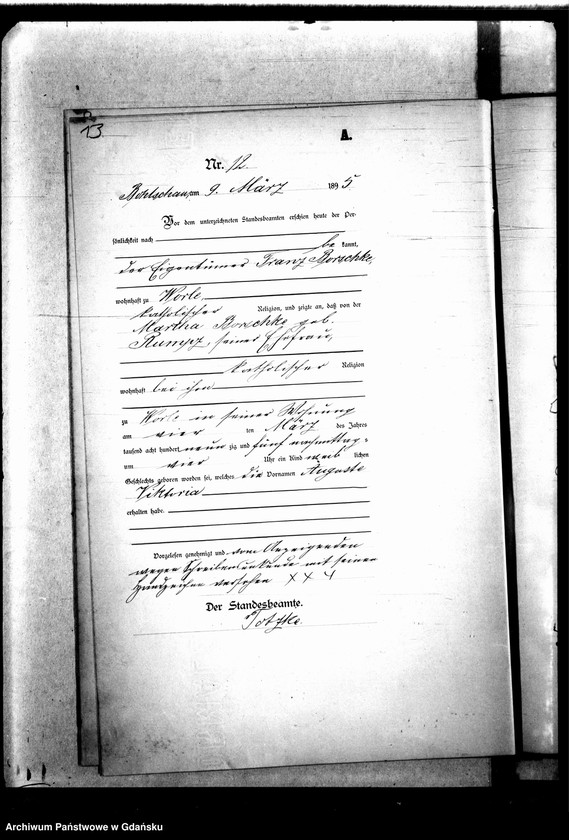 13
A.
Nr. 12.
am 9. März 1895.
Vor dem unterzeichneten Standesbeamten erschien heute der Per-
sönlichkeit nach
be kannt,
der Eigentümer Franz Borschke,
wohnhaft zu Worle
katholischer Religion, und zeigte an, daß von der
Martha Borschke geb.
seiner Ehefrau,
katholischer Religion
wohnhaft bei ihm
zu Worle in seiner Wohnung
am vier ten März des Jahres
tausend acht hundert neun zig und fünf nachmittag s
um vier Uhr ein Kind weib lichen
Geschlechts geboren worden sei, welches die Vornamen Auguste
Viktoria
erhalten habe.
Vorgelesen, genehmigt und vom Anzeigenden
wegen Schreibensunkunde mit seinem
Handzeichen versehen XXX
Der Standesbeamte.
Totzke.
Archiwum Państwowe w Gdańsku